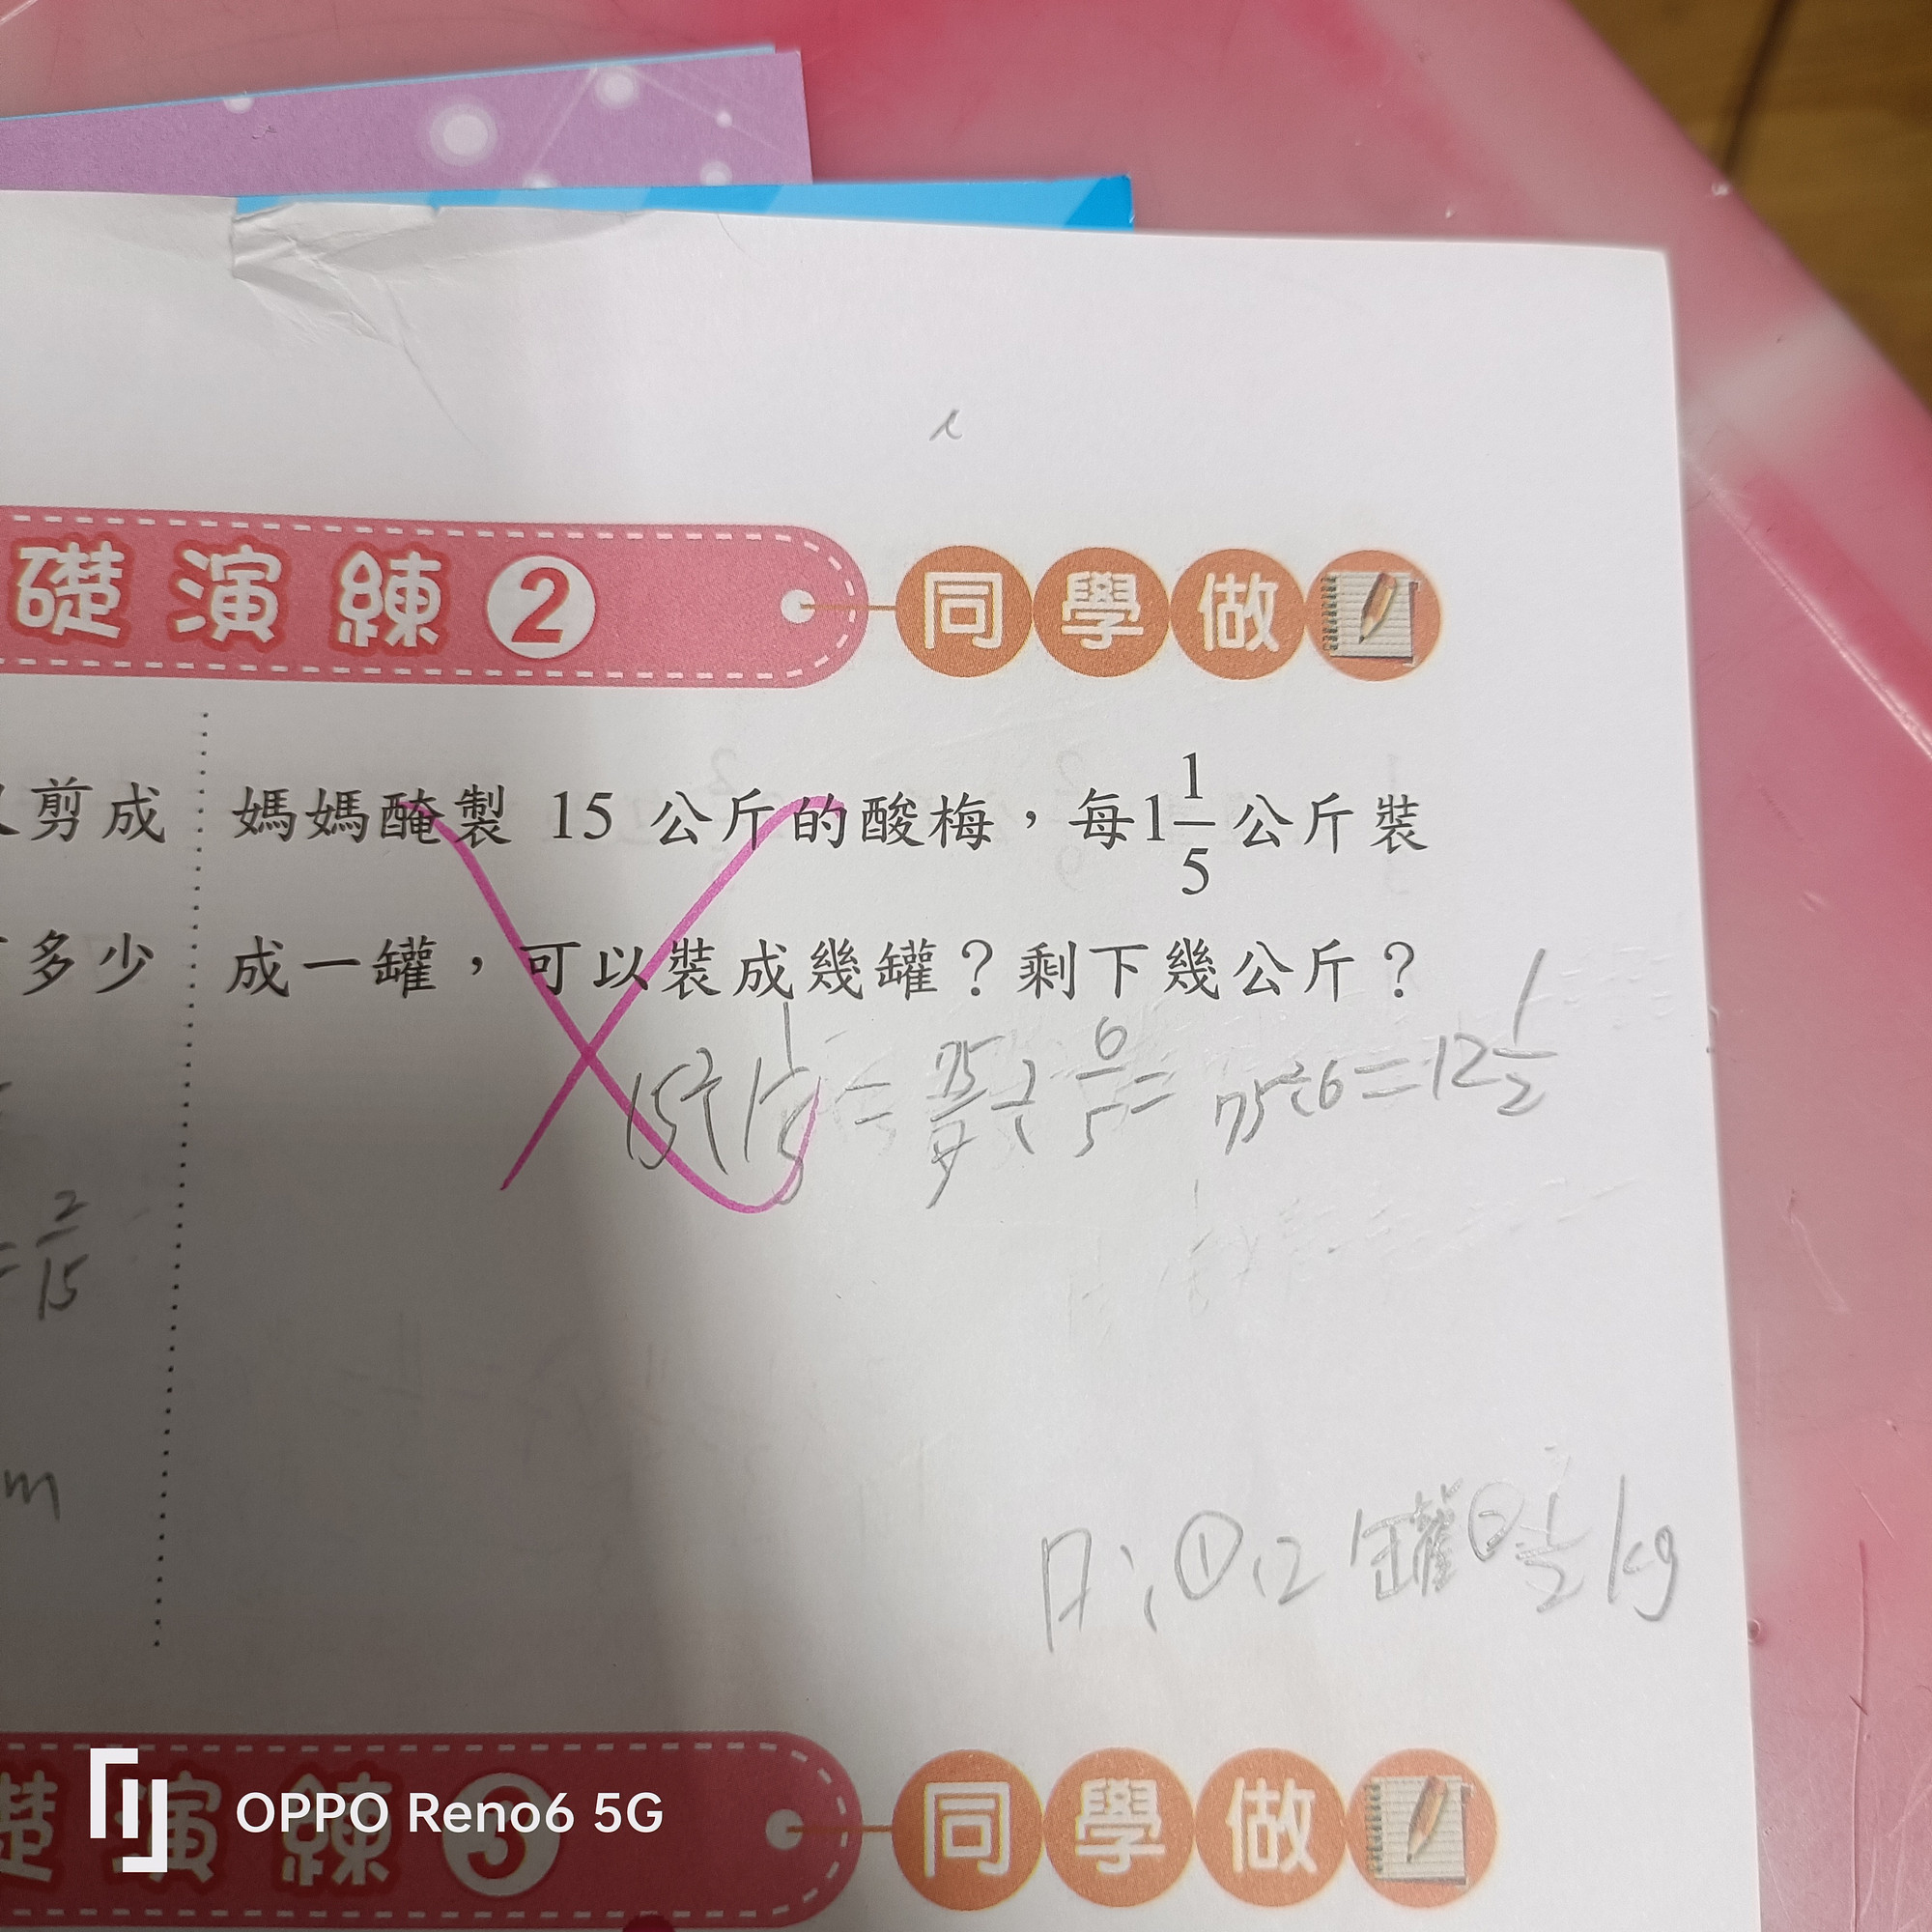 礎演練2 同學做
剪成
多少
媽媽醃製 15 公斤的酸梅，每1 1/5 公斤裝
成一罐，可以裝成幾罐？剩下幾公斤？
15÷1 1/5 = 75/5 ÷ 6/5 = 75÷6=12 1/2
= 2/15
m
A: ①12罐② 1/2 kg
礎演練3 同學做
OPPO Reno6 5G